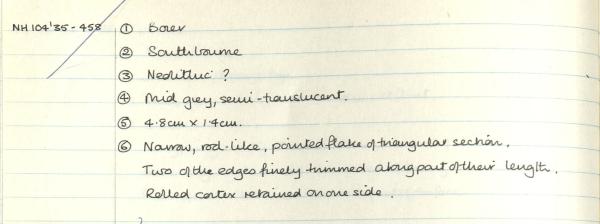 NH104'35-458 ① Borer
② Southbourne
③ Neolithic ?
④ Mid grey, semi-translucent.
⑤ 4.8cm × 1.4cm.
⑥ Narrow, rod-like, pointed flake of triangular section.
Two of the edges finely trimmed along part of their length.
Rolled cortex retained on one side.